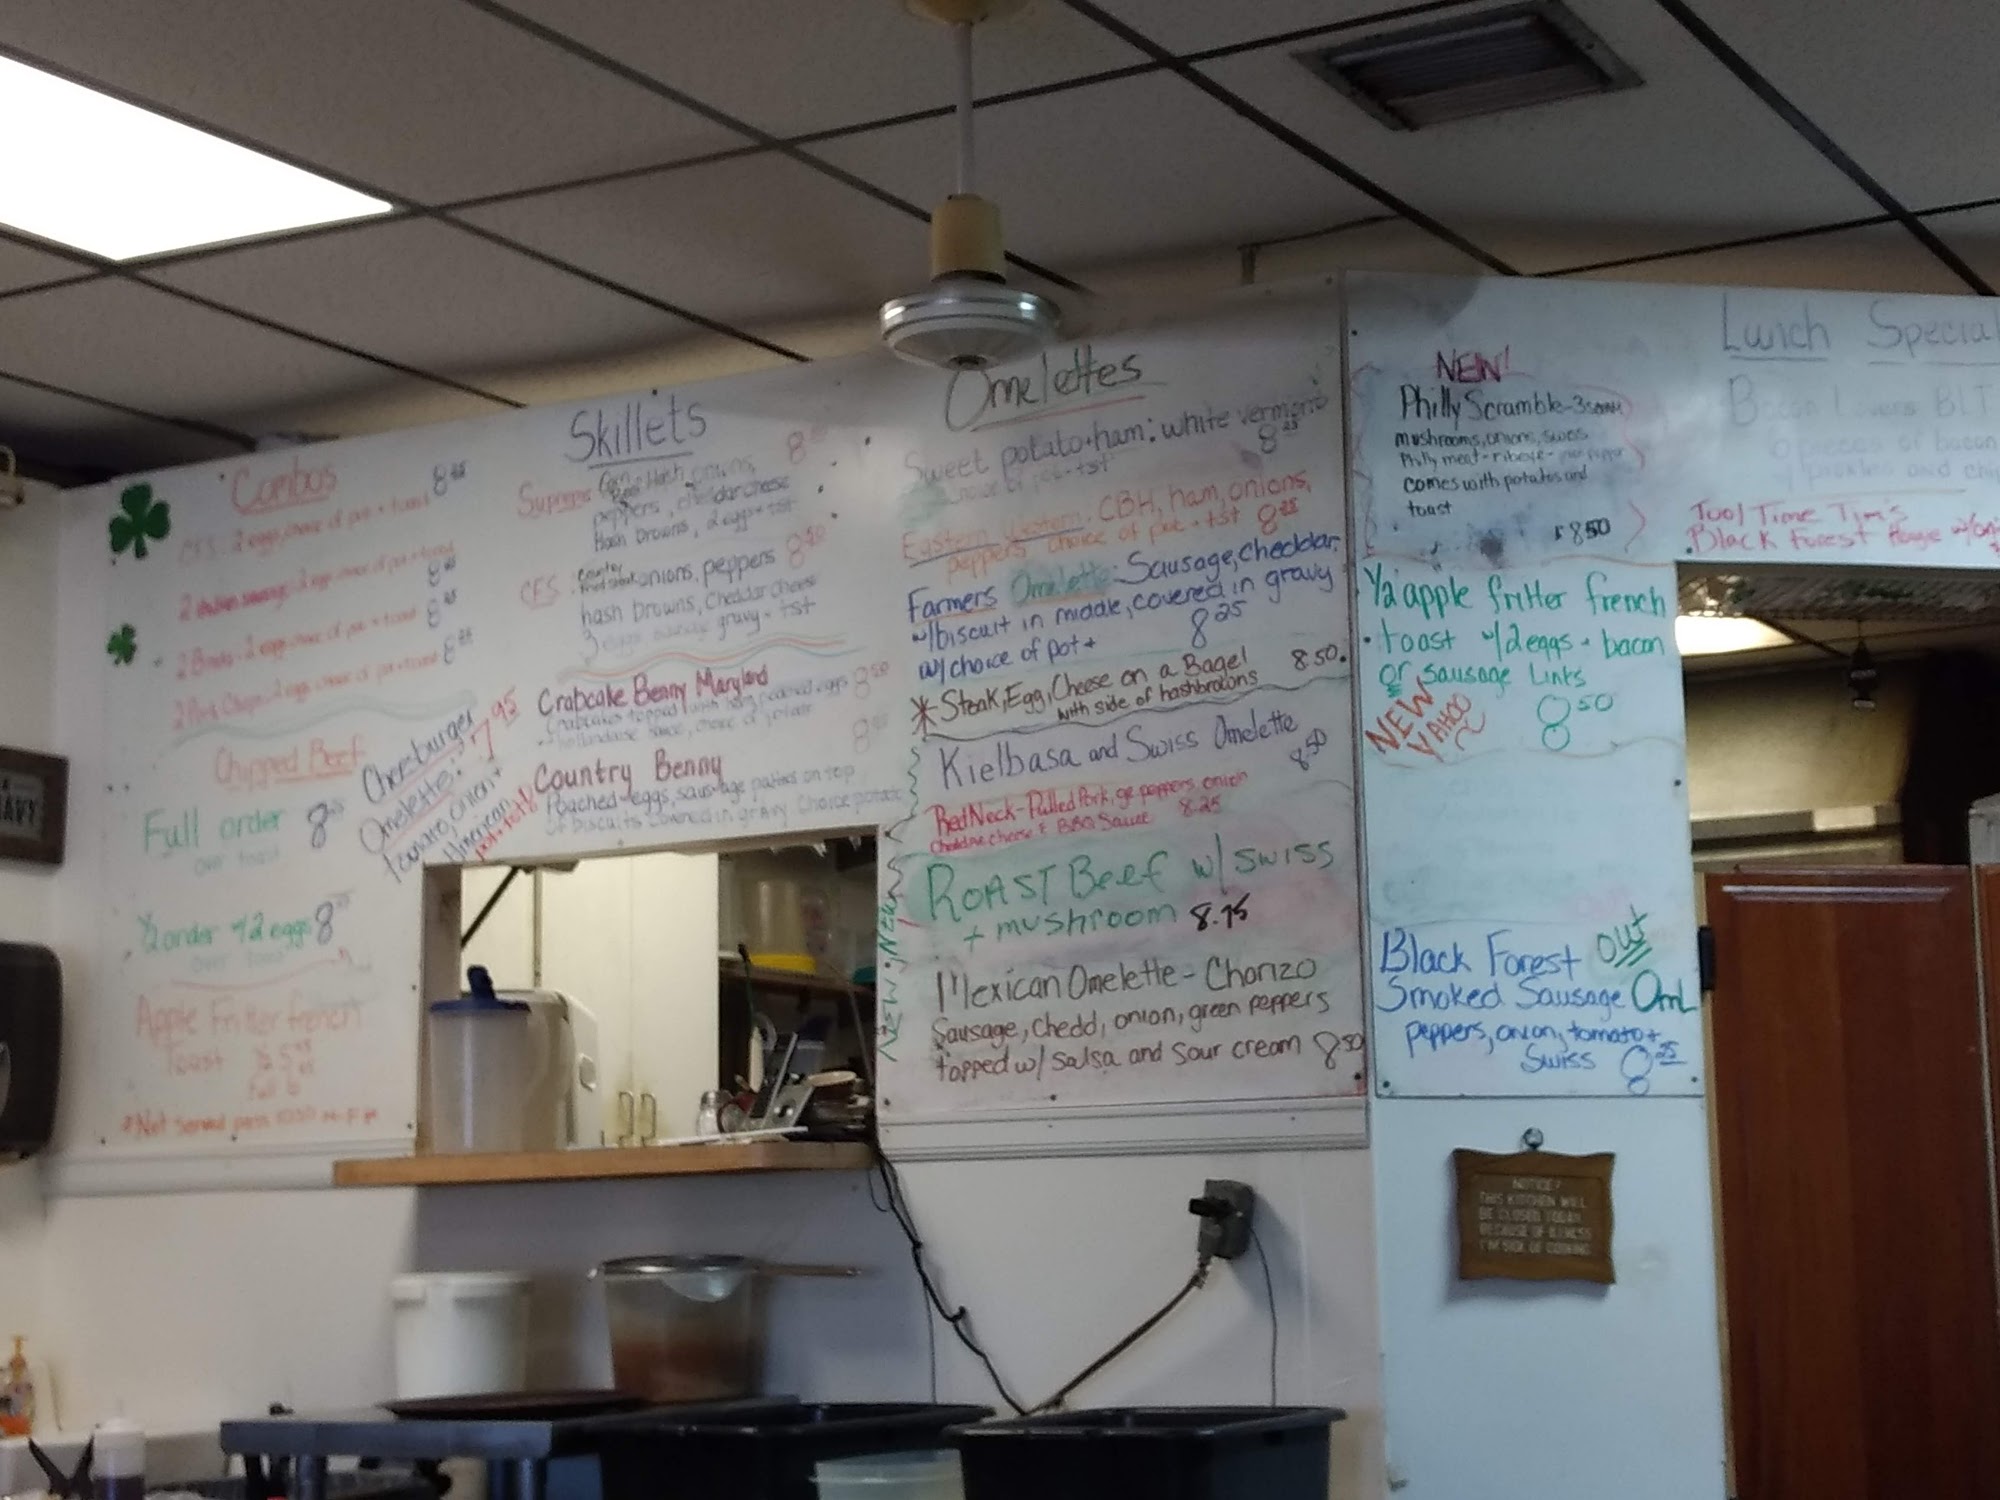 Combos
CFS - 2 eggs, choice of pot + toast 8
2 eggs choice of pot + toast 8
2 eggs choice of pot + toast 8
2 Pork Chops - 2 eggs choice of pot + toast 8
Chipped Beef
Full order 8
over toast
1/2 order w/2 eggs 8
over toast
Apple Fritter french
Toast 1/2 5 95
Full 6
*Not served past M-F
Cheeseburger
Omelette: 7 95
onion +
American
pot + tst
Skillets
Supreme Corn Beef Hash, onions, 8
peppers, cheddar cheese
Hash browns, 2 eggs + tst
CFS: Country fried steak onions, peppers 8 50
hash browns, Cheddar cheese
3 eggs sausage gravy - tst
Crabcake Benny Maryland
Crabcakes topped with poached eggs 8 50
hollandaise sauce, choice of
Country Benny 8
Poached eggs, sausage patties on top
of biscuits covered in gravy choice potato
Omelettes
Sweet potato + ham: white vermont
choice of pot - tst 8 25
Eastern Western. CBH, ham, onions,
peppers choice of pot + tst 8 25
Farmers Omelette: Sausage, cheddar
w/biscuit in middle, covered in gravy
w/choice of pot + 8 25
* Steak, Egg, Cheese on a Bagel 8.50
with side of hashbrowns
Kielbasa and Swiss Omelette
8 50
RedNeck - Pulled Pork, ge peppers, onion
cheddar cheese + BBQ Sauce 8.25
NEW NEW
ROAST Beef w/ swiss
+ mushroom 8.95
Mexican Omelette - Chorizo
Sausage, Chedd, onion, green peppers
topped w/ salsa and sour cream 8 50
NEW!
Philly Scramble - 3
mushrooms, onions, swiss
Philly meat - ribeye -
comes with potatoes and
toast
8.50
1/2 apple fritter french
toast w/2 eggs + bacon
or sausage links
NEW YAHOO 8 50
Black Forest OUT
Smoked Sausage Oml
peppers, onion, tomato +
Swiss 8 25
Lunch Special
Bacon Lovers BLT
6 pieces of bacon
pickles and chi
Tool Time Tim's
Black Forest
NOTICE!
THIS KITCHEN WILL
BE CLOSED TODAY
BECAUSE OF ILLNESS
I'M SICK OF COOKING